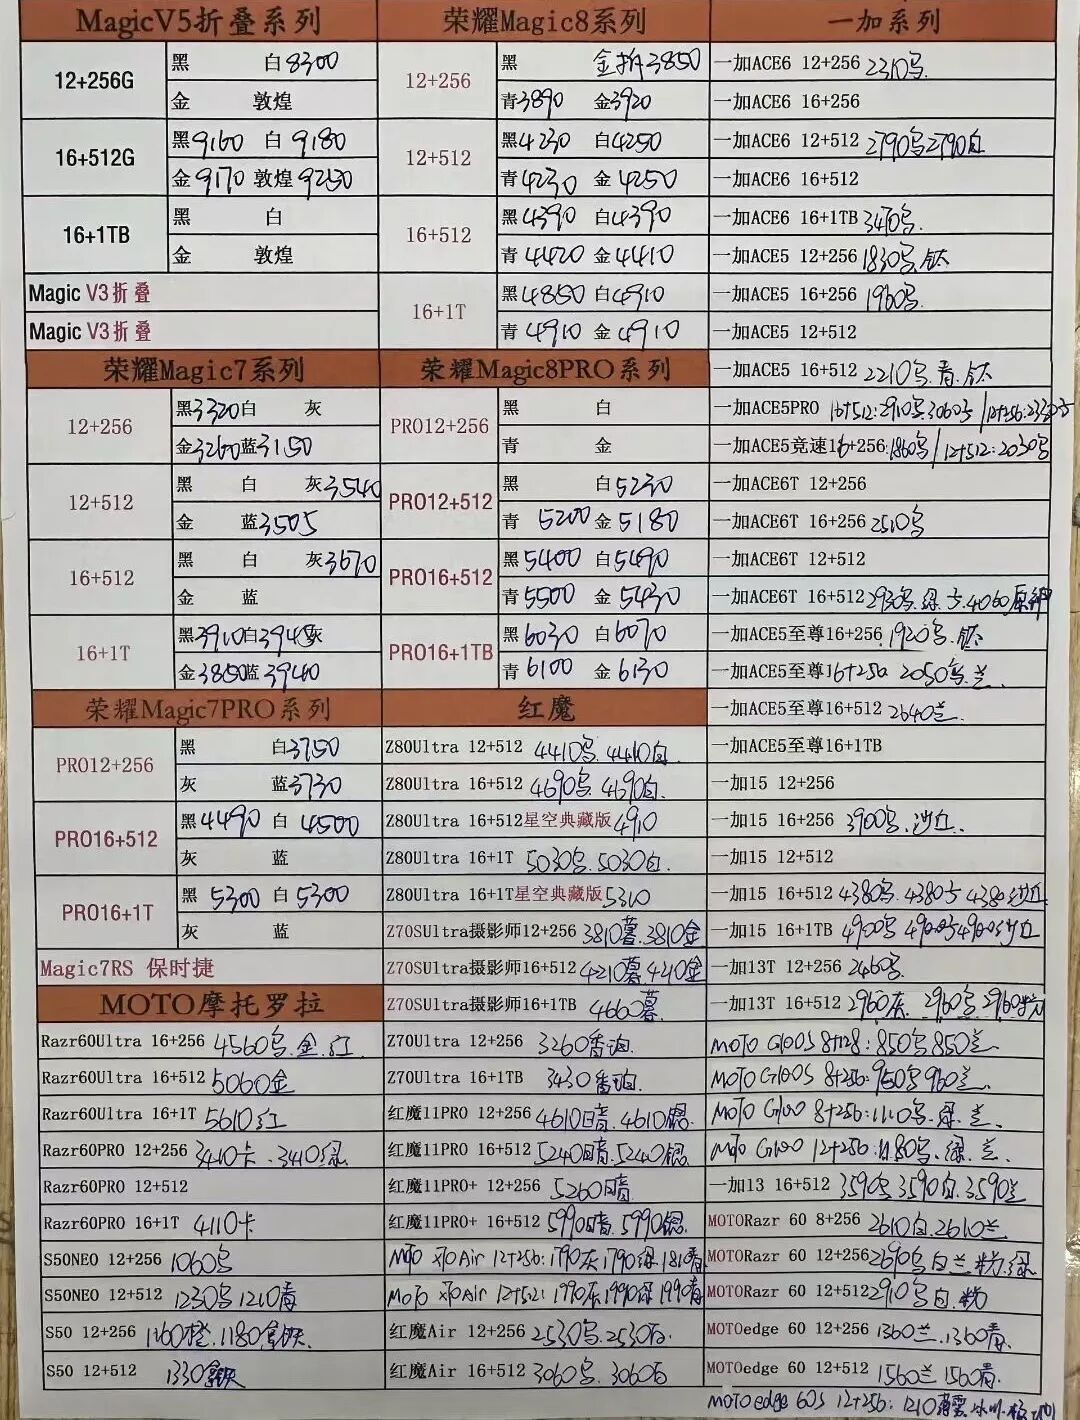 MagicV5折叠系列
12+256G
黑 白8300
金 敦煌
16+512G
黑9160 白9180
金9170 敦煌9250
16+1TB
黑 白
金 敦煌
Magic V3折叠
Magic V3折叠
荣耀Magic7系列
12+256
黑3320白 灰
金3260蓝3150
12+512
黑 白 灰3540
金 蓝3505
16+512
黑 白 灰3670
金 蓝
16+1T
黑3910白3945灰
金3850蓝3940
荣耀Magic7PRO系列
PRO12+256
黑 白3750
灰 蓝3730
PRO16+512
黑4490 白4500
灰 蓝
PRO16+1T
黑5300 白5300
灰 蓝
Magic7RS 保时捷
MOTO摩托罗拉
Razr60Ultra 16+256 4560乌.金.红
Razr60Ultra 16+512 5060金
Razr60Ultra 16+1T 5610红
Razr60PRO 12+256 3410卡、3410绿
Razr60PRO 12+512
Razr60PRO 16+1T 4110卡
S50NEO 12+256 1060乌
S50NEO 12+512 1230乌1210青
S50 12+256 1160橙.1180拿铁
S50 12+512 1330拿铁
荣耀Magic8系列
12+256
黑 金拆3850
青3890 金3920
12+512
黑4230 白4250
青4230 金4250
16+512
黑4390 白4390
青4420 金4410
16+1T
黑4850 白4910
青4910 金4910
荣耀Magic8PRO系列
PRO12+256
黑 白
青 金
PRO12+512
黑 白5230
青 5200 金5180
PRO16+512
黑5400 白5490
青5500 金5430
PRO16+1TB
黑6030 白6070
青6100 金6130
红魔
Z80Ultra 12+512 4410乌.4410白.
Z80Ultra 16+512 4690乌.4690白.
Z80Ultra 16+512星空典藏版4910
Z80Ultra 16+1T 5030乌.5030白.
Z80Ultra 16+1T星空典藏版5310
Z70SUltra摄影师12+256 3810暮.3810金
Z70SUltra摄影师16+512 4210暮.4210金
Z70SUltra摄影师16+1TB 4660暮.
Z70Ultra 12+256 3260番珀.
Z70Ultra 16+1TB 3430番珀.
红魔11PRO 12+256 4610暗.4610银.
红魔11PRO 16+512 5240暗.5240银.
红魔11PRO+ 12+256 5260暗
红魔11PRO+ 16+512 5990暗.5990银.
MOTO X70Air 12+256:1790灰1790绿1810青
MOTO X70Air 12+512:1990灰1990绿1990青
红魔Air 12+256 2530乌.2530白.
红魔Air 16+512 3060乌.3060白
一加系列
一加ACE6 12+256 2310乌.
一加ACE6 16+256
一加ACE6 12+512 2790乌2790白
一加ACE6 16+512
一加ACE6 16+1TB 3410乌.
一加ACE5 12+256 1830乌.钛
一加ACE5 16+256 1960乌.
一加ACE5 12+512
一加ACE5 16+512 2210乌.青.钛
一加ACE5PRO 16+512:2910乌.3060
一加ACE5竞速16+256:1860乌/12+512:2030乌
一加ACE6T 12+256
一加ACE6T 16+256 2510乌
一加ACE6T 12+512
一加ACE6T 16+512 2930乌.绿
一加ACE5至尊16+256.1920乌.钛
一加ACE5至尊16+256 2050乌.兰.
一加ACE5至尊16+512 2640兰.
一加ACE5至尊16+1TB
一加15 12+256
一加15 16+256 3900乌.沙丘.
一加15 12+512
一加15 16+512 4380乌.4380 4380沙丘
一加15 16+1TB 4900乌 4900 4900沙丘
一加13T 12+256 2460乌.
一加13T 16+512 2960灰.2960乌2960粉
MOTO G100S 8+128:850乌850兰.
MOTO G100S 8+256:950乌960兰.
MOTO G100 8+256:1110乌.绿.兰.
MOTO G100 12+256:1180乌.绿.兰.
一加13 16+512 3590乌3590白.3590兰
MOTORazr 60 8+256 2610白.2610兰
MOTORazr 60 12+256 2690乌白兰粉.绿
MOTORazr 60 12+512 2910乌白.粉
MOTOedge 60 12+256 1360兰.1360青.
MOTOedge 60 12+512 1560兰1560青.
MOTO edge 60S 12+256:1210